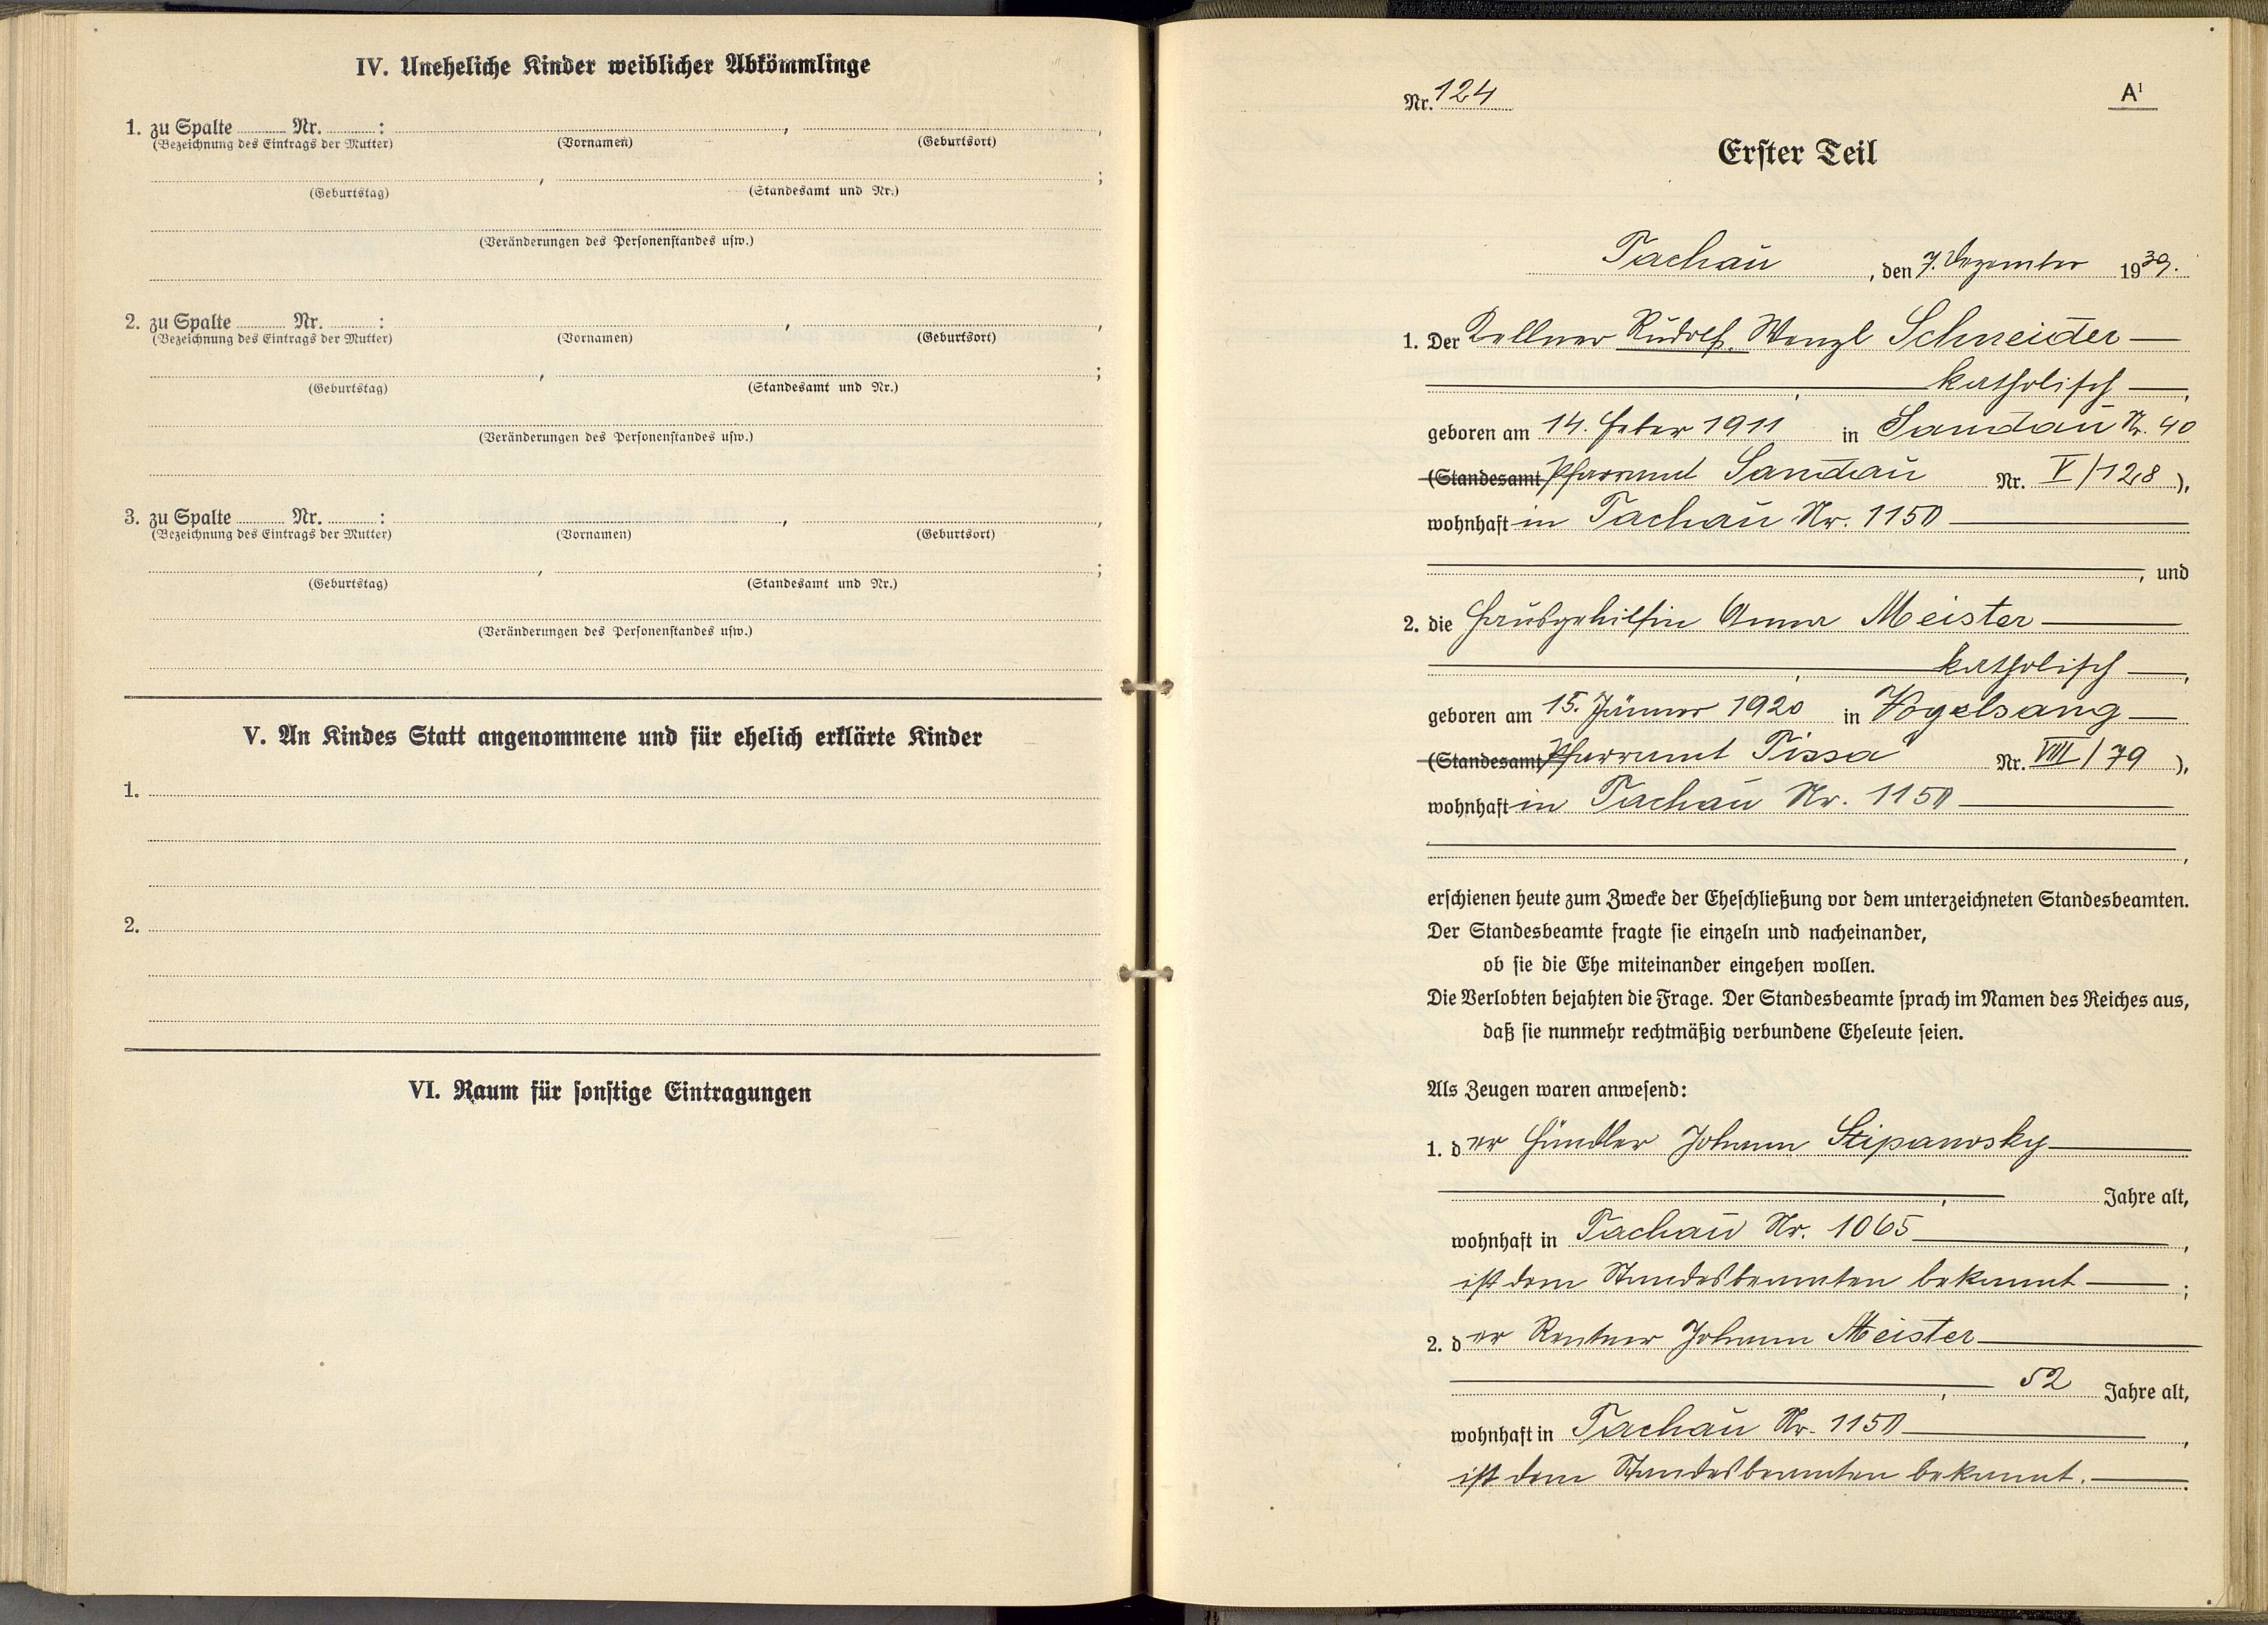 IV. Uneheliche Kinder weiblicher Abkömmlinge
1. zu Spalte Nr. : , ,
(Bezeichnung des Eintrags der Mutter) (Vornamen) (Geburtsort)
, ;
(Geburtstag) (Standesamt und Nr.)
(Veränderungen des Personenstandes usw.)
2. zu Spalte Nr. : , ,
(Bezeichnung des Eintrags der Mutter) (Vornamen) (Geburtsort)
, ;
(Geburtstag) (Standesamt und Nr.)
(Veränderungen des Personenstandes usw.)
3. zu Spalte Nr. : , ,
(Bezeichnung des Eintrags der Mutter) (Vornamen) (Geburtsort)
, ;
(Geburtstag) (Standesamt und Nr.)
(Veränderungen des Personenstandes usw.)
V. An Kindes Statt angenommene und für ehelich erklärte Kinder
1.
2.
VI. Raum für sonstige Eintragungen
Nr. 124 A¹
Erster Teil
Tachau, den 7. Dezember 1939.
1. Der Kellner Rudolf Wenzl Schneider —
, katholisch —,
geboren am 14. Feber 1911 in Sandau Nr. 40
(Standesamt Pfarramt Sandau Nr. V/128 ),
wohnhaft in Tachau Nr. 1150 —
, und
2. die Hausgehilfin Anna Meister —
, katholisch —,
geboren am 15. Jänner 1920 in Vogelsang —
(Standesamt Pfarramt Tissa Nr. VIII/79 ),
wohnhaft in Tachau Nr. 1150 —
,
erschienen heute zum Zwecke der Eheschließung vor dem unterzeichneten Standesbeamten.
Der Standesbeamte fragte sie einzeln und nacheinander,
ob sie die Ehe miteinander eingehen wollen.
Die Verlobten bejahten die Frage. Der Standesbeamte sprach im Namen des Reiches aus,
daß sie nunmehr rechtmäßig verbundene Eheleute seien.
Als Zeugen waren anwesend:
1. der Händler Johann Stipanosky —
, Jahre alt,
wohnhaft in Tachau Nr. 1065 —,
ist dem Standesbeamten bekannt —;
2. der Rentner Johann Meister —
, 52 Jahre alt,
wohnhaft in Tachau Nr. 1150 —,
ist dem Standesbeamten bekannt. —